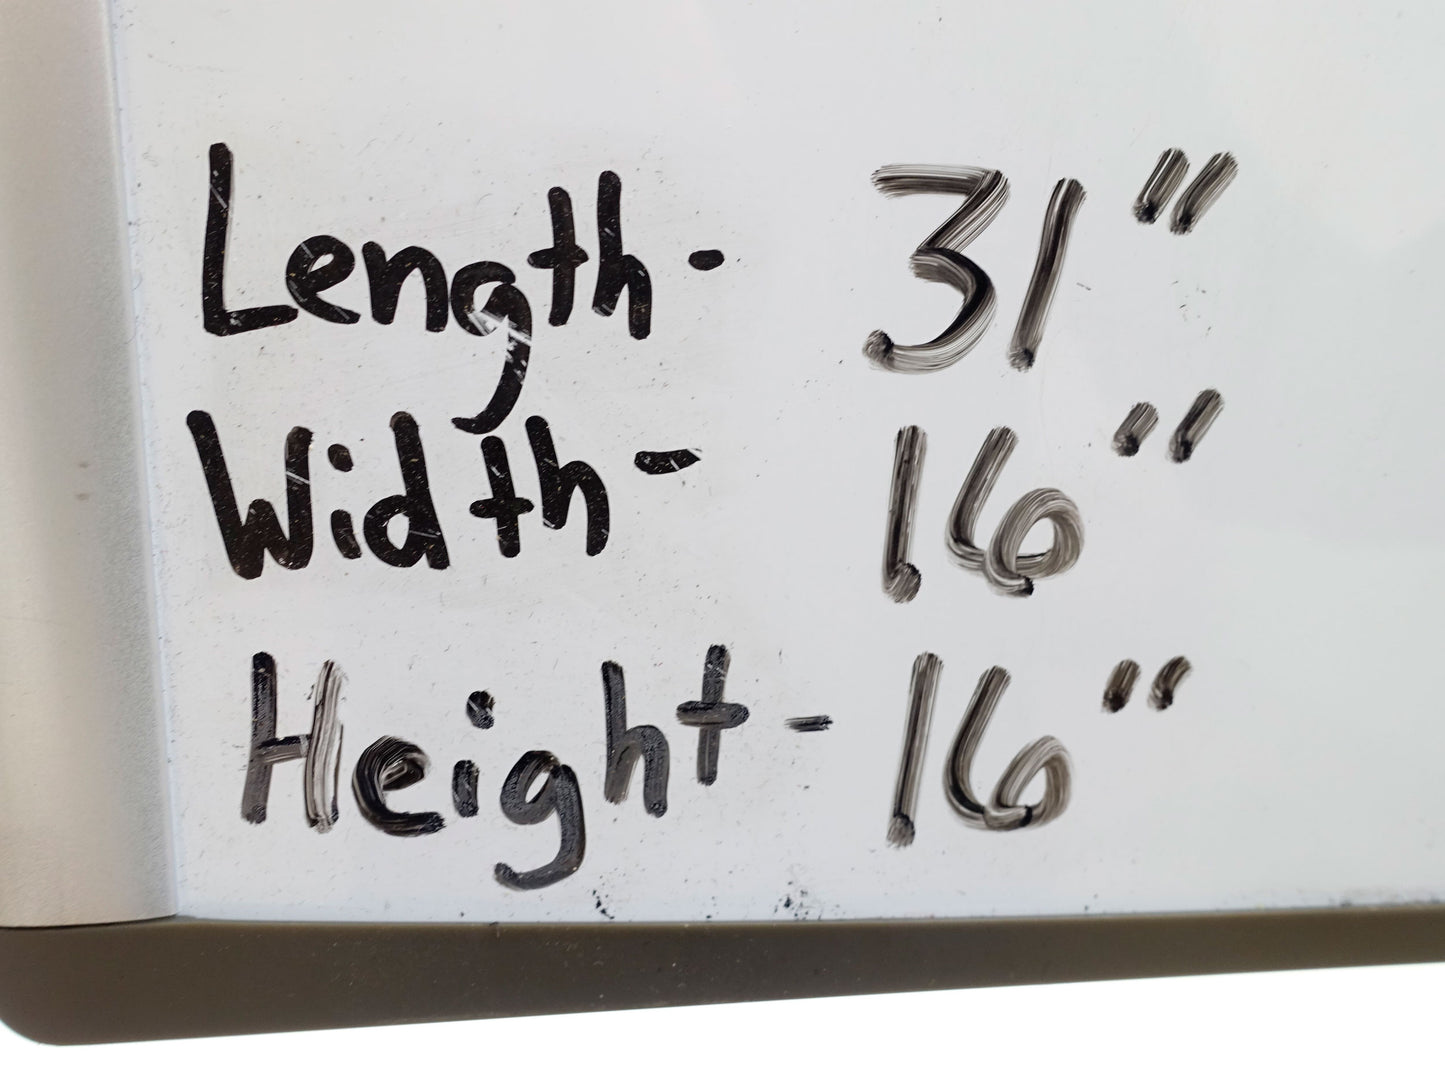 Length- 31"
Width- 16"
Height- 16"